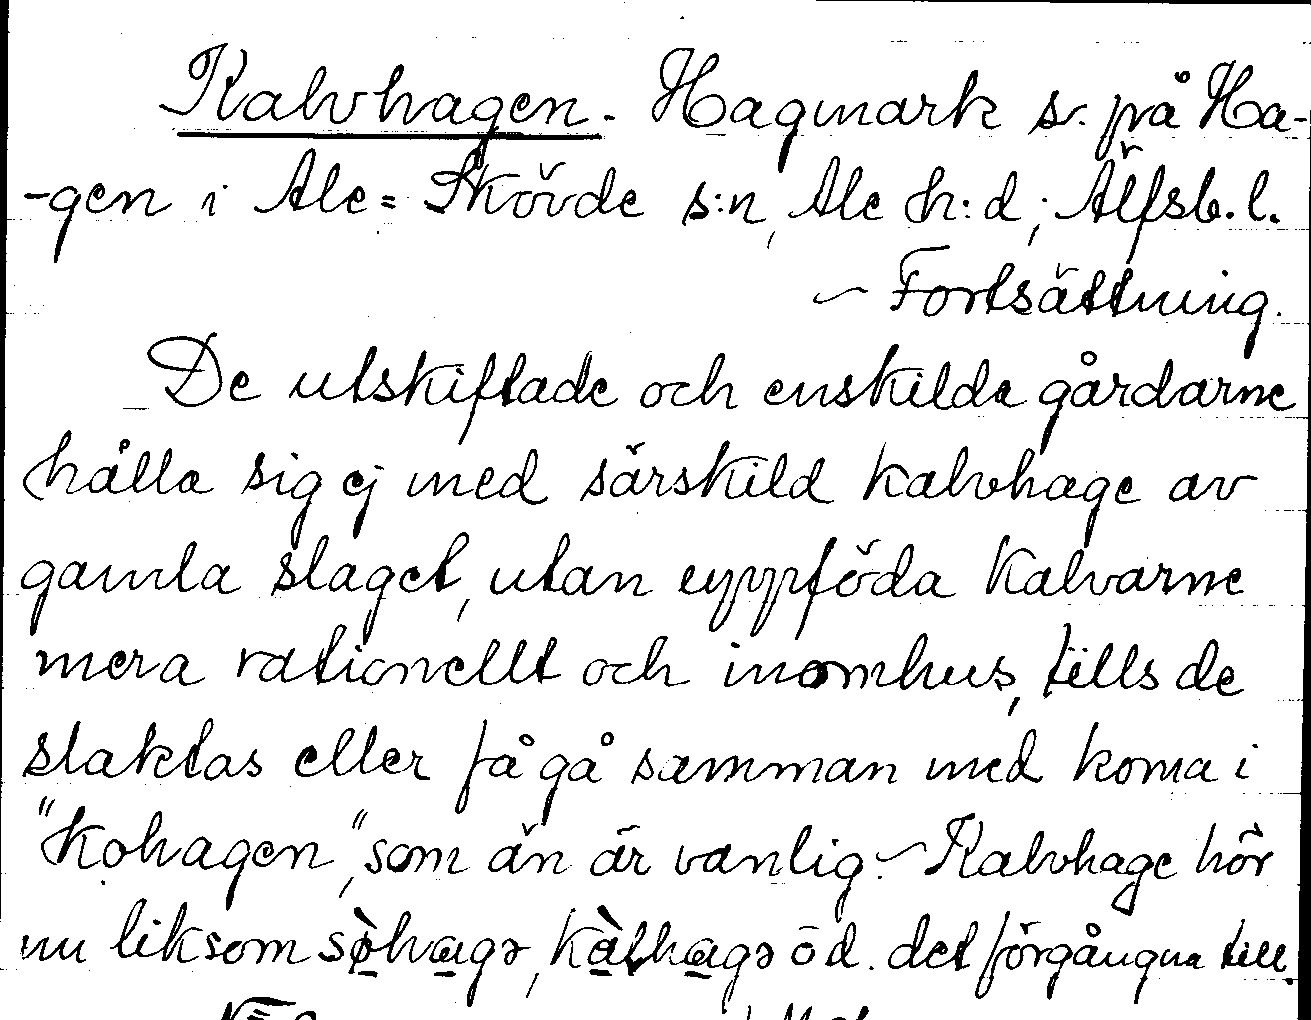 Kalvhagen. Hagmark sv. på Ha-
-gen i Ale=Skövde s:n, Ale h:d; Älfsb. l.
~ Fortsättning.
De utskiftade och enskilda gårdarne
hålla sig ej med särskild kalvhage av
gamla slaget, utan uppföda kalvarne
mera rationellt och inomhus, tills de
slaktas eller få gå samman med korna i
"kohagen", som än är vanlig. ~ Kalvhage hör
nu liksom det förgångna till.